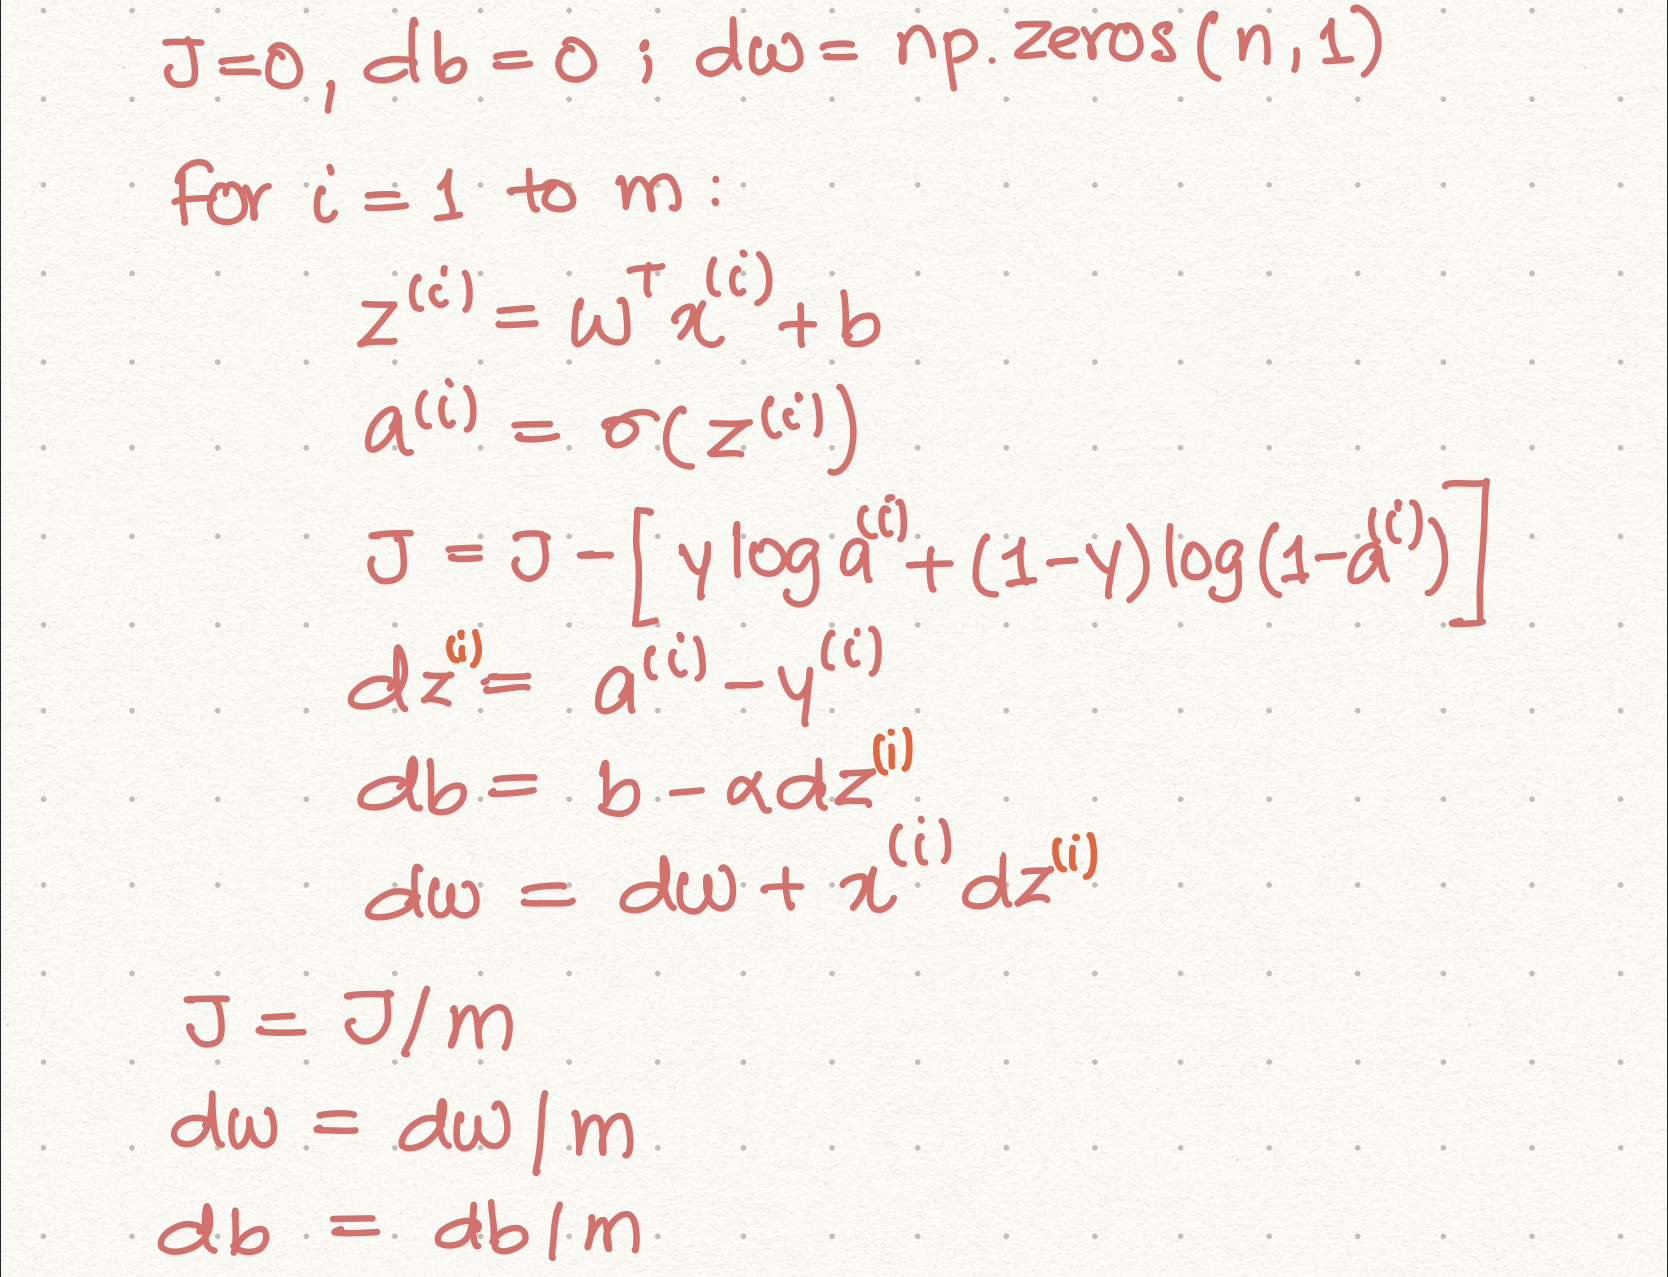 J=0, db=0; dw=np.zeros(n,1)
for i=1 to m:
z⁽ⁱ⁾ = wᵀx⁽ⁱ⁾+b
a⁽ⁱ⁾ = σ(z⁽ⁱ⁾)
J = J-[y log a⁽ⁱ⁾+(1-y)log(1-a⁽ⁱ⁾)]
dz⁽ⁱ⁾= a⁽ⁱ⁾-y⁽ⁱ⁾
db = b-αdz⁽ⁱ⁾
dw = dw+x⁽ⁱ⁾dz⁽ⁱ⁾
J = J/m
dw = dw/m
db = db/m